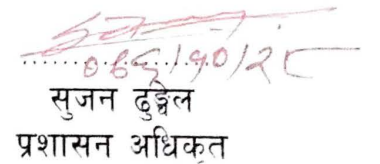 ०६६/१०/२८
सुजन ढुङ्गेल
प्रशासन अधिकृत